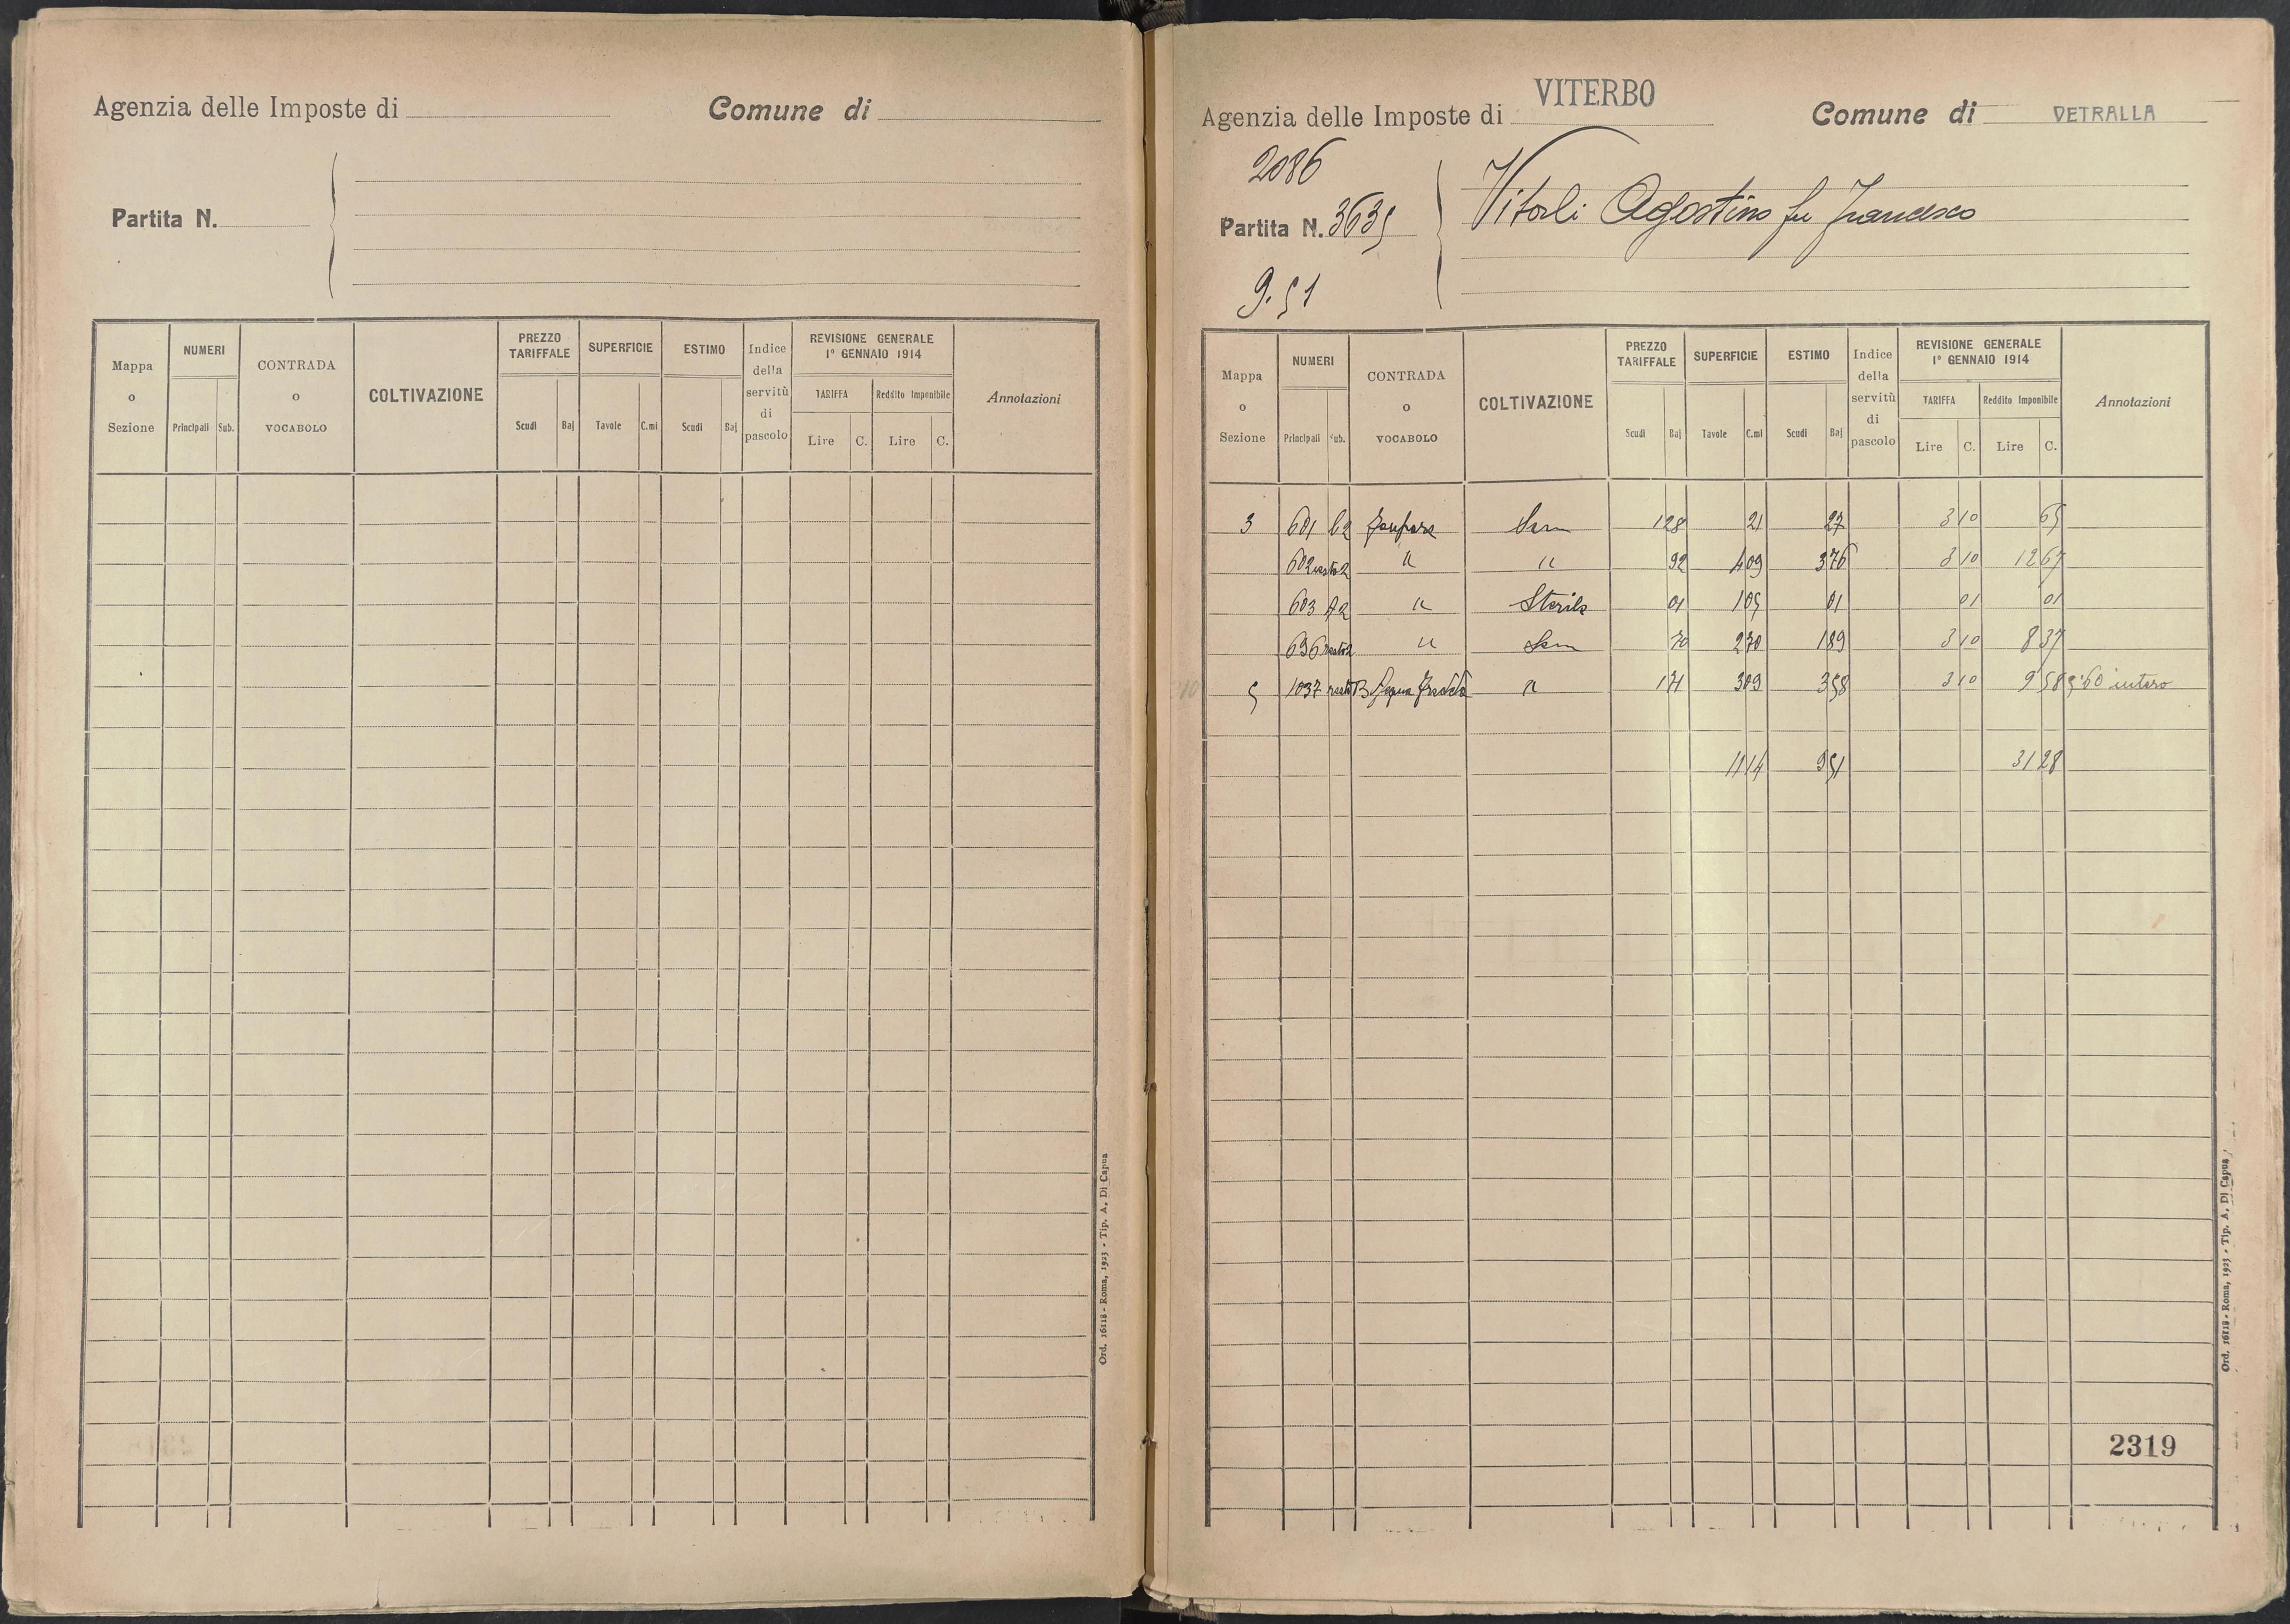 Agenzia delle Imposte di
Comune di
Partita N.
Mappa o Sezione
NUMERI
Principali Sub.
CONTRADA o VOCABOLO
COLTIVAZIONE
PREZZO TARIFFALE
Scudi Baj
SUPERFICIE
Tavole C.mi
ESTIMO
Scudi Baj
Indice della servitù di pascolo
REVISIONE GENERALE
1° GENNAIO 1914
TARIFFA Reddito Imponibile
Lire C. Lire C.
Annotazioni
Ord. 16118 - Roma, 1923 - Tip. A. Di Capua
Agenzia delle Imposte di VITERBO
Comune di VETRALLA
2086
Partita N. 3635
Vitali Agostino fu Francesco
9.51
Mappa o Sezione
NUMERI
Principali Sub.
CONTRADA o VOCABOLO
COLTIVAZIONE
PREZZO TARIFFALE
Scudi Baj
SUPERFICIE
Tavole C.mi
ESTIMO
Scudi Baj
Indice della servitù di pascolo
REVISIONE GENERALE
1° GENNAIO 1914
TARIFFA Reddito Imponibile
Lire C. Lire C.
Annotazioni
3 601 Sem 1 28 21 27 3 10 65
602 resto 2 " " 92 4 09 3 76 3 10 12 67
603 " Sterile 01 1 05 01 01 01
696 resto 2 " Sem 70 2 70 1 89 3 10 8 37
5 1037 " 3 09 3 58 3 10 9 58 intero
11 14 9 51 31 28
2319
Ord. 16118 - Roma, 1923 - Tip. A. Di Capua